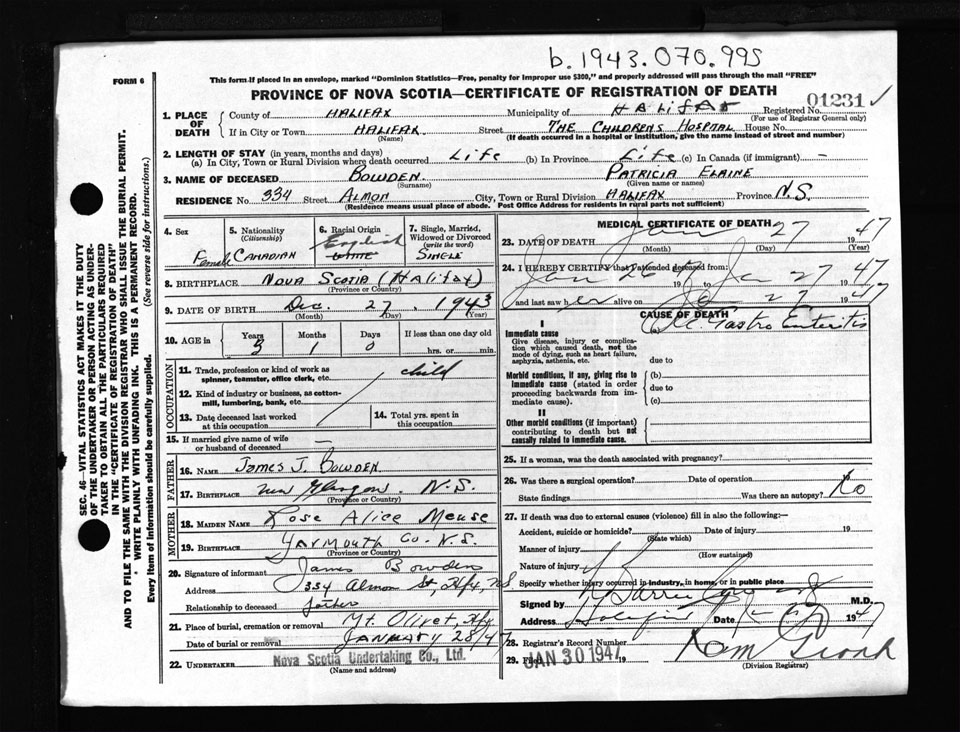 b.1943.070.995
FORM 6
This form if placed in an envelope, marked "Dominion Statistics—Free, penalty for improper use $300," and properly addressed will pass through the mail "FREE"
PROVINCE OF NOVA SCOTIA—CERTIFICATE OF REGISTRATION OF DEATH
1. PLACE OF DEATH
County of HALIFAX Municipality of HALIFAX Registered No. 01231 ✓
(For use of Registrar General only)
If in City or Town HALIFAX Street THE CHILDRENS HOSPITAL House No.
(Name) (If death occurred in a hospital or institution, give the name instead of street and number)
2. LENGTH OF STAY (in years, months and days)
(a) In City, Town or Rural Division where death occurred Life (b) In Province Life (c) In Canada (if immigrant) —
3. NAME OF DECEASED BOWDEN. PATRICIA ELAINE
(Surname) (Given name or names)
RESIDENCE No. 334 Street ALMON City, Town or Rural Division HALIFAX Province N.S.
(Residence means usual place of abode. Post Office Address for residents in rural parts not sufficient)
4. Sex Female
5. Nationality (Citizenship) CANADIAN
6. Racial Origin English
7. Single, Married, Widowed or Divorced (write the word) SINGLE
8. BIRTHPLACE NOVA SCOTIA (Halifax)
(Province or Country)
9. DATE OF BIRTH Dec 27 1943
(Month) (Day) (Year)
10. AGE in Years 3 Months 1 Days 0 If less than one day old
hrs. or min.
OCCUPATION
11. Trade, profession or kind of work as spinner, teamster, office clerk, etc. child
12. Kind of industry or business, as cotton-mill, lumbering, bank, etc.
13. Date deceased last worked at this occupation
14. Total yrs. spent in this occupation
15. If married give name of wife or husband of deceased —
FATHER
16. NAME James J. BOWDEN
17. BIRTHPLACE New Glasgow. N.S.
(Province or Country)
MOTHER
18. MAIDEN NAME Rose Alice Meuse
19. BIRTHPLACE YARMOUTH Co. N.S.
(Province or Country)
20. Signature of informant James Bowden
Address 334 Almon St, Hfx, NS
Relationship to deceased father
21. Place of burial, cremation or removal Mt. Olivet, Hfx
Date of burial or removal JANUARY 28/47
22. UNDERTAKER Nova Scotia Undertaking Co., Ltd.
(Name and address)
MEDICAL CERTIFICATE OF DEATH
23. DATE OF DEATH Jan 27 1947
(Month) (Day) (Year)
24. I HEREBY CERTIFY that I attended deceased from:
Jan 26 19 to Jan 27 1947
and last saw her alive on Ja 27 1947
CAUSE OF DEATH
I
Immediate cause
Give disease, injury or complication which caused death, not the mode of dying, such as heart failure, asphyxia, asthenia, etc.
(a) Ac Gastro Enteritis
due to
Morbid conditions, if any, giving rise to immediate cause (stated in order proceeding backwards from immediate cause).
(b)
due to
(c)
II
Other morbid conditions (if important) contributing to death but not causally related to immediate cause.
25. If a woman, was the death associated with pregnancy?
26. Was there a surgical operation? Date of operation
State findings Was there an autopsy? No
27. If death was due to external causes (violence) fill in also the following:—
Accident, suicide or homicide? Date of injury 19
(State which)
Manner of injury
(How sustained)
Nature of injury
Specify whether injury occurred in industry, in home, or in public place
Signed by M.D.
Address Halifax Date 1947
28. Registrar's Record Number
29. Filed JAN 30 1947 19
(Division Registrar)
SEC. 46—VITAL STATISTICS ACT MAKES IT THE DUTY
OF THE UNDERTAKER OR PERSON ACTING AS UNDER-
TAKER TO OBTAIN ALL THE PARTICULARS REQUIRED
IN THE "CERTIFICATE OF REGISTRATION OF DEATH"
AND TO FILE THE SAME WITH THE DIVISION REGISTRAR WHO SHALL ISSUE THE BURIAL PERMIT.
WRITE PLAINLY WITH UNFADING INK. THIS IS A PERMANENT RECORD.
Every item of information should be carefully supplied. (See reverse side for instructions.)